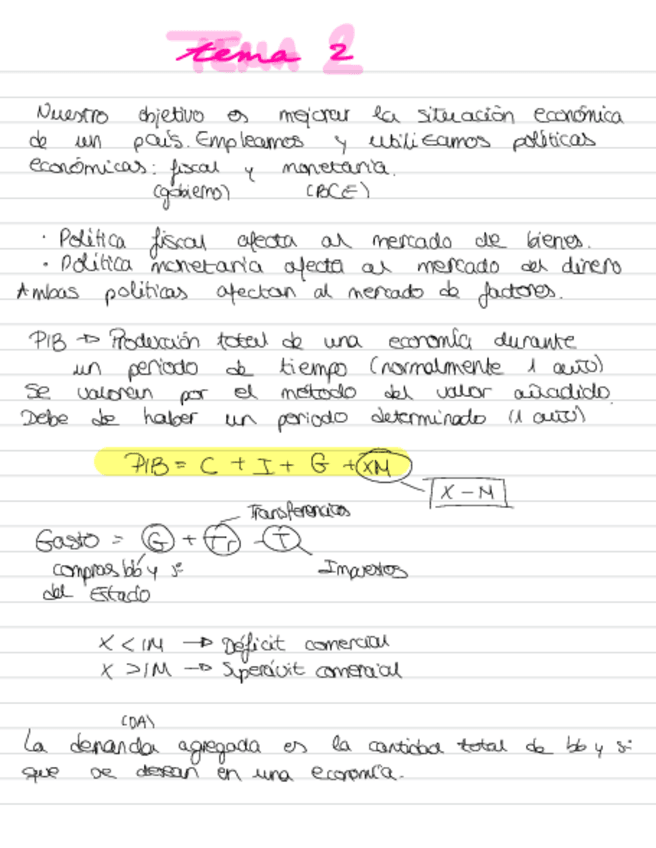 tema 2
Nuestro objetivo es mejorar la situación económica
de un país. Empleamos y utilizamos políticas
económicas: fiscal y monetaria.
(gobierno) (BCE)
· Política fiscal afecta al mercado de bienes.
· Política monetaria afecta al mercado del dinero
Ambas políticas afectan al mercado de factores.
PIB → Producción total de una economía durante
un periodo de tiempo (normalmente 1 año)
Se valoran por el método del valor añadido.
Debe de haber un periodo determinado (1 año)
PIB = C + I + G + XM
X - M
Transferencias
Gasto = G + Tr - T
compras bb y ss Impuestos
del Estado
X < IM → Déficit comercial
X > IM → Superávit comercial
(DA)
La demanda agregada es la cantidad total de bb y ss
que se desean en una economía.